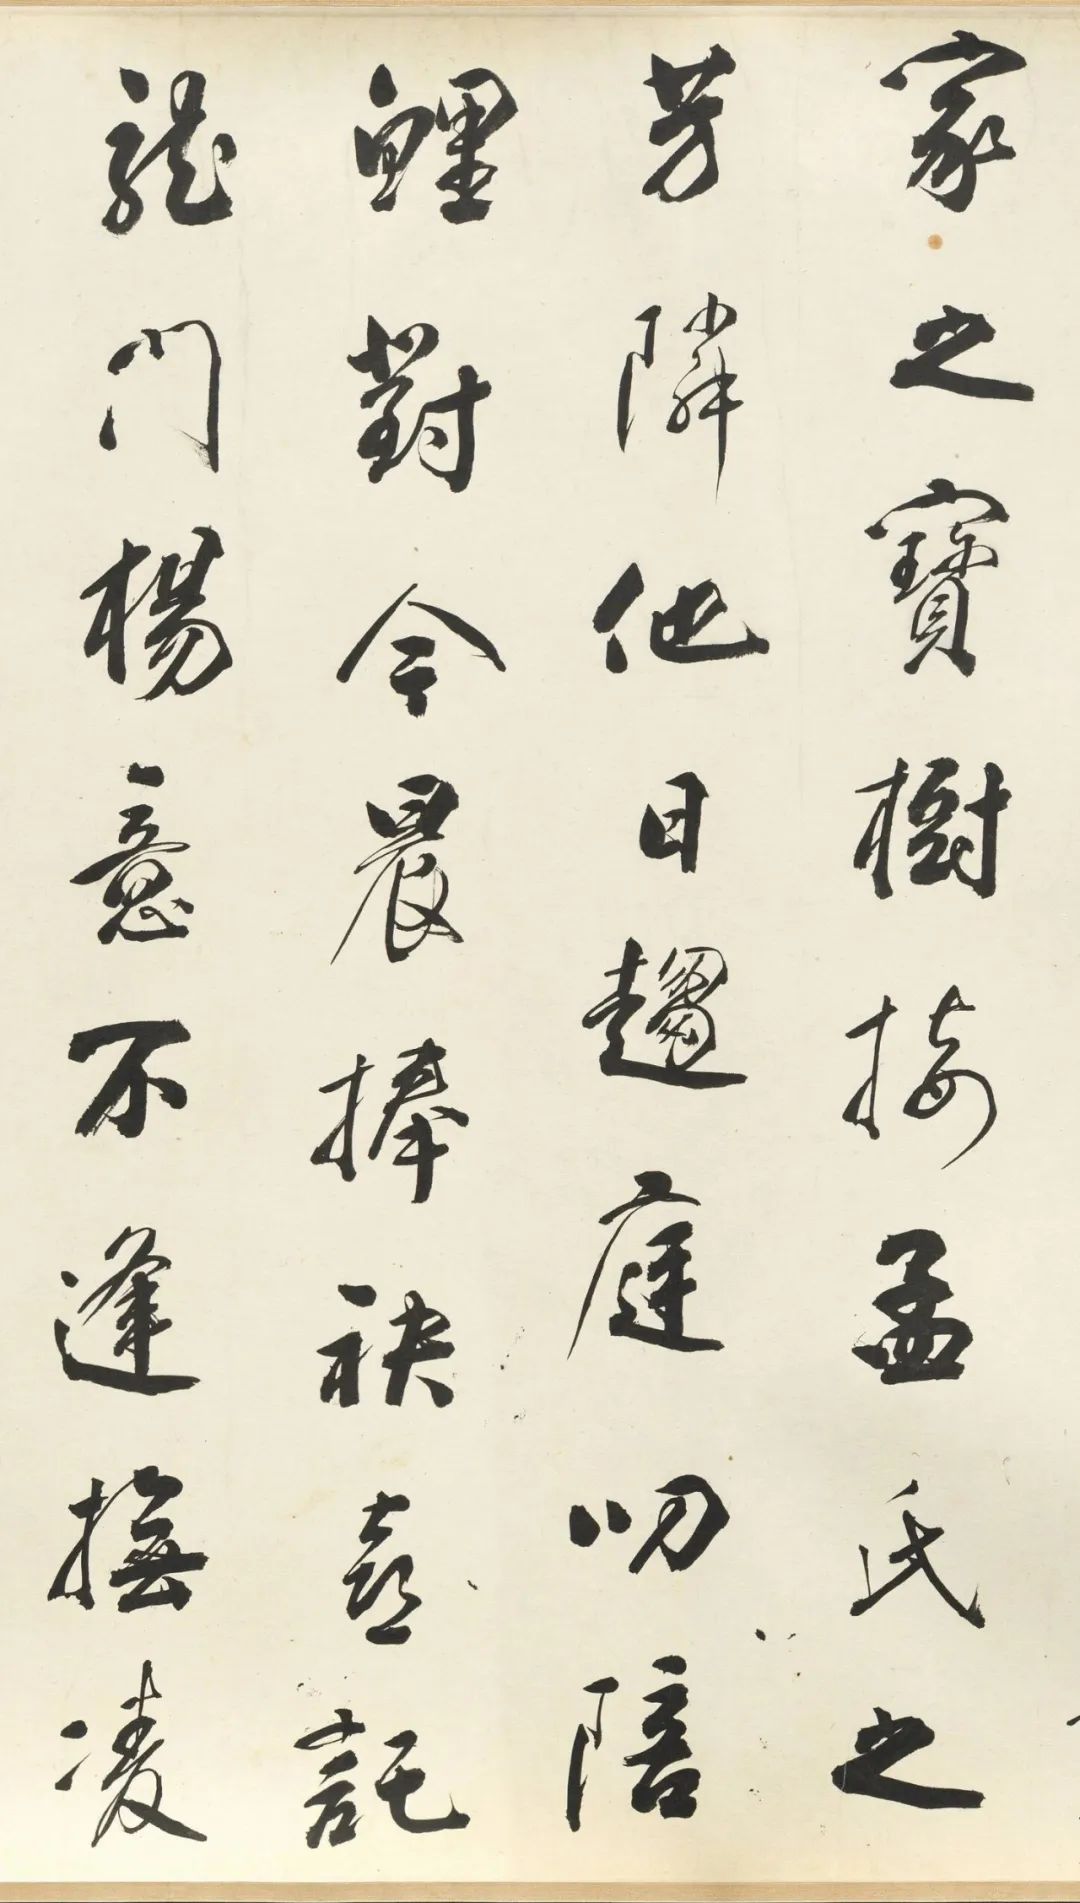 家之寶樹接孟氏之
芳隣他日趨庭叨陪
鯉對今晨捧袂喜託
龍門楊意不逢撫凌